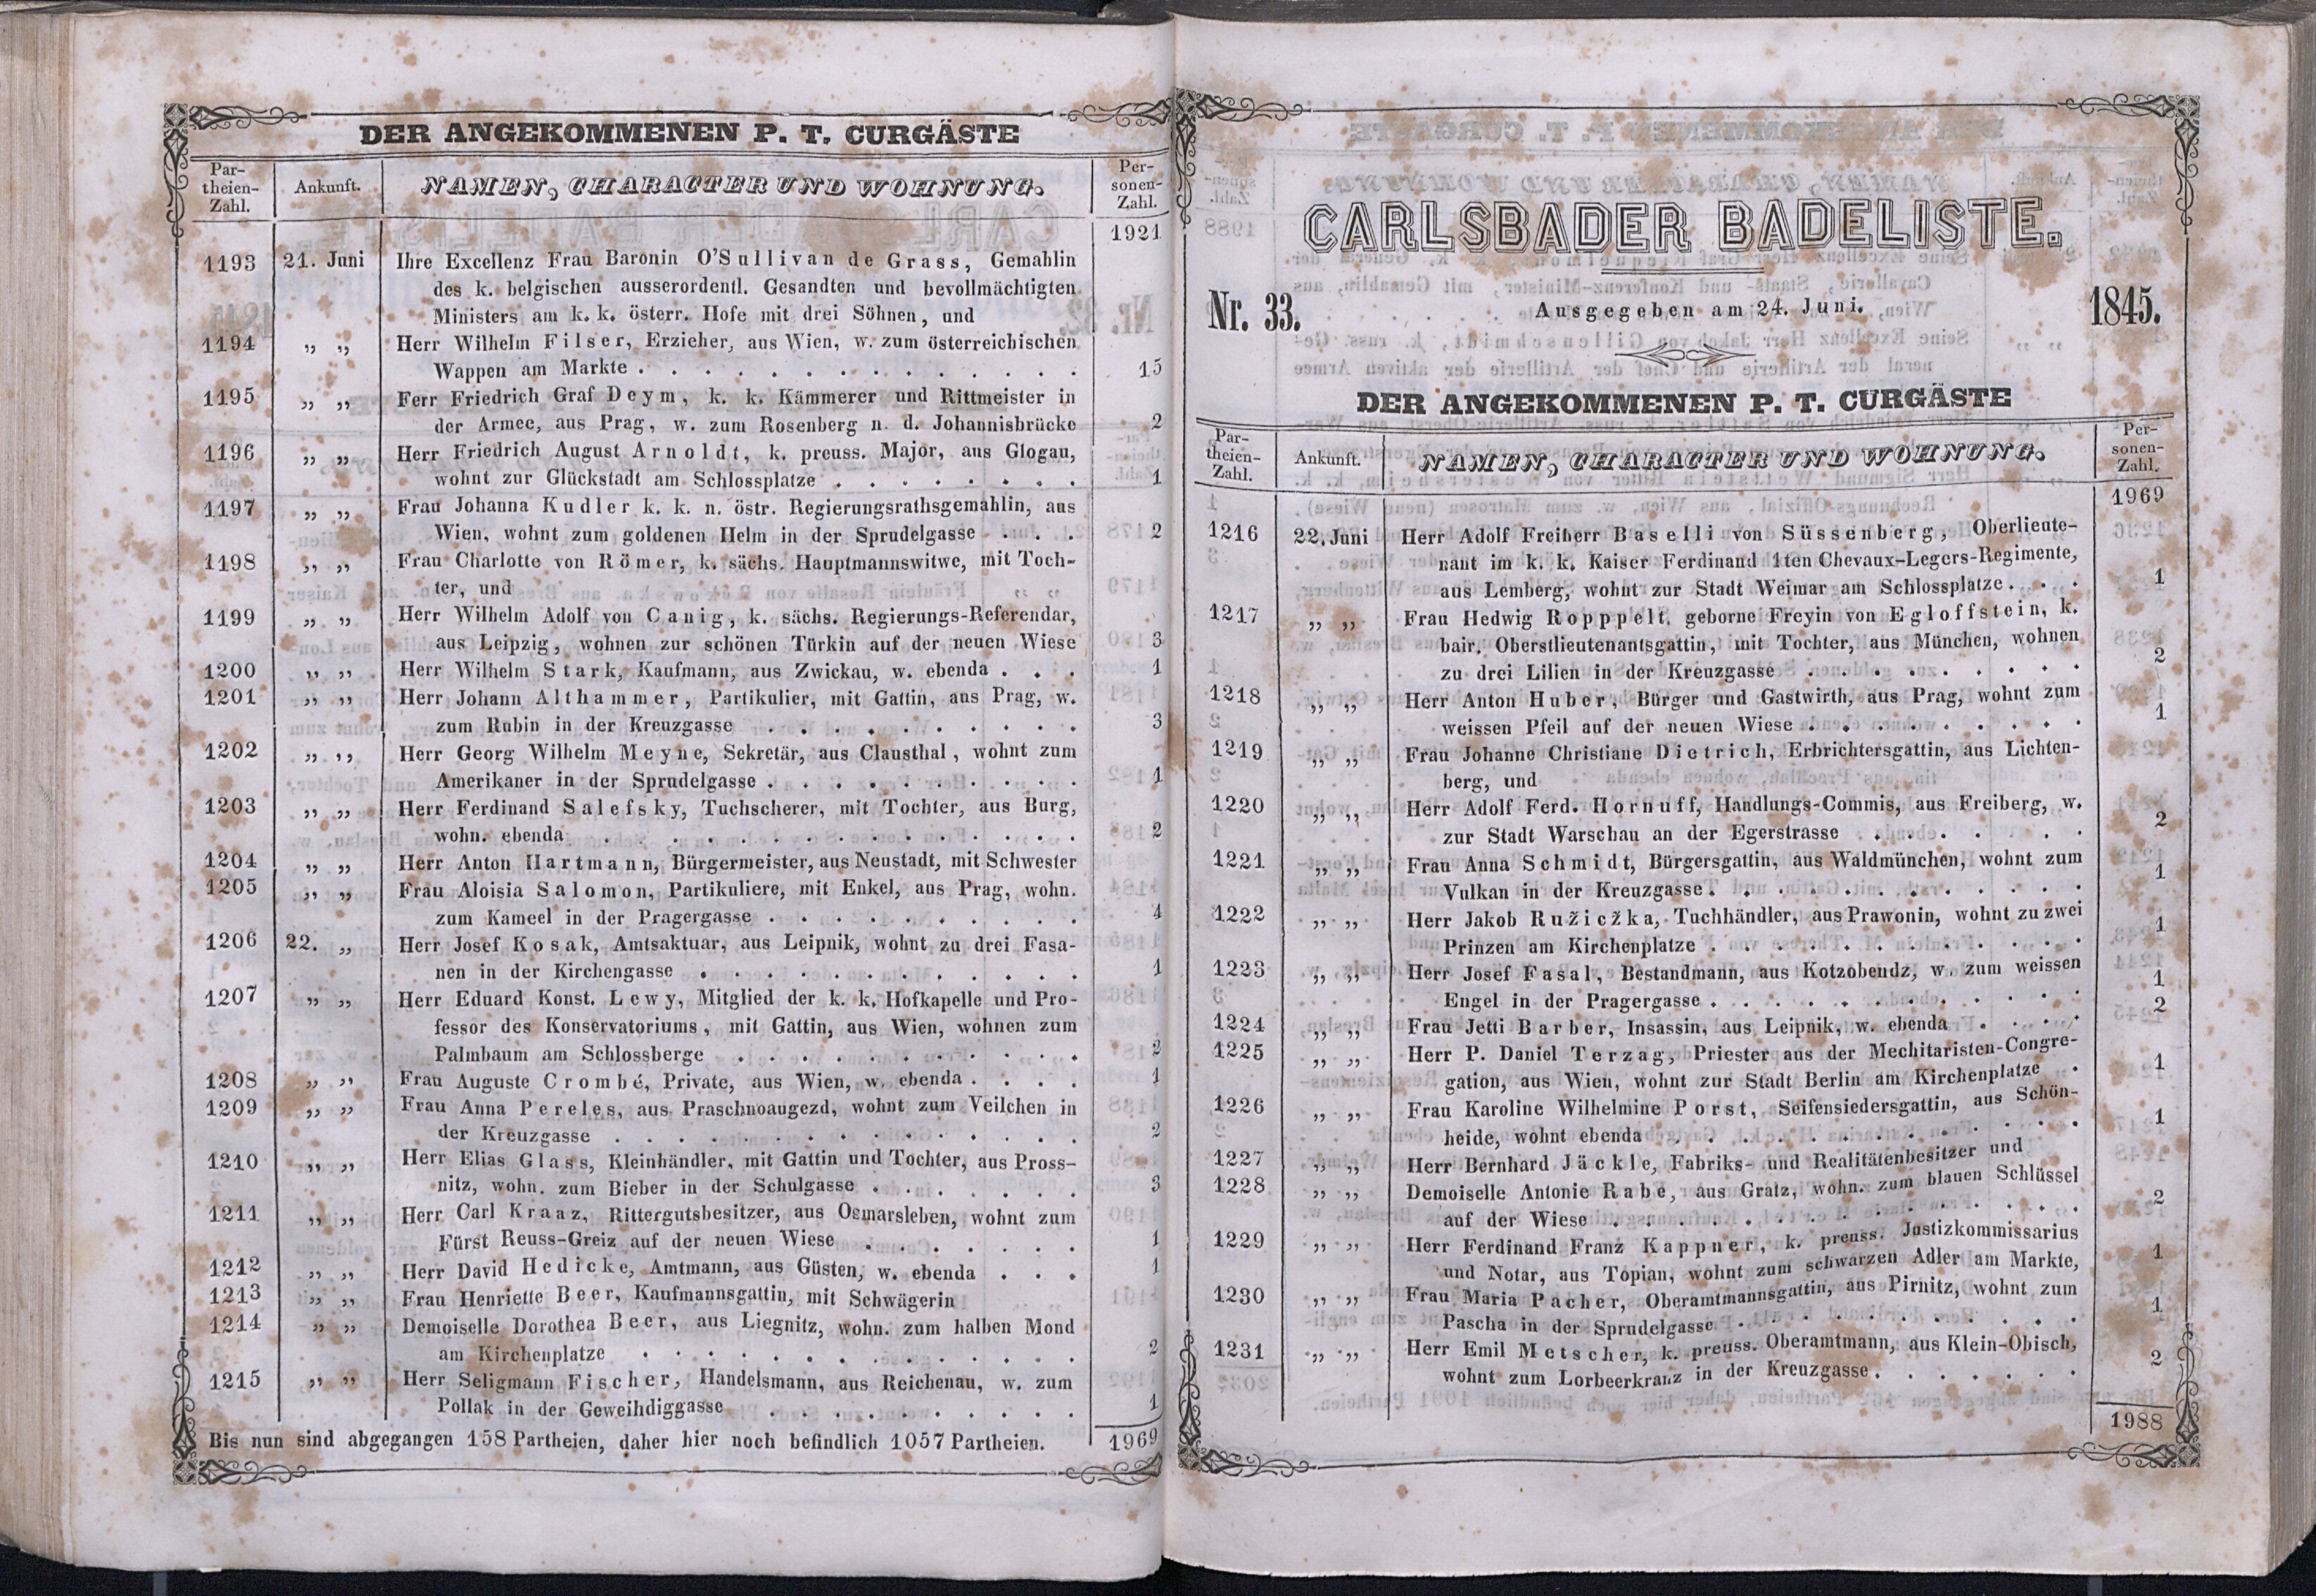 DER ANGEKOMMENEN P. T. CURGÄSTE
Par-
theien-
Zahl.
Ankunft.
NAMEN, CHARACTER UND WOHNUNG.
Per-
sonen-
Zahl.
1921
1193 21. Juni Ihre Excellenz Frau Baronin O'Sullivan de Grass, Gemahlin
des k. belgischen ausserordentl. Gesandten und bevollmächtigten
Ministers am k. k. österr. Hofe mit drei Söhnen, und
1194 „ „ Herr Wilhelm Filser, Erzieher, aus Wien, w. zum österreichischen
Wappen am Markte . . . . . . . . . . . . . 15
1195 „ „ Ferr Friedrich Graf Deym, k. k. Kämmerer und Rittmeister in
der Armee, aus Prag, w. zum Rosenberg n. d. Johannisbrücke 2
1196 „ „ Herr Friedrich August Arnoldt, k. preuss. Major, aus Glogau,
wohnt zur Glückstadt am Schlossplatze . . . . . . . . 1
1197 „ „ Frau Johanna Kudler k. k. n. östr. Regierungsrathsgemahlin, aus
Wien, wohnt zum goldenen Helm in der Sprudelgasse . . . 2
1198 „ „ Frau Charlotte von Römer, k. sächs. Hauptmannswitwe, mit Toch-
ter, und
1199 „ „ Herr Wilhelm Adolf von Canig, k. sächs. Regierungs-Referendar,
aus Leipzig, wohnen zur schönen Türkin auf der neuen Wiese 3
1200 „ „ Herr Wilhelm Stark, Kaufmann, aus Zwickau, w. ebenda . . . 1
1201 „ „ Herr Johann Althammer, Partikulier, mit Gattin, aus Prag, w.
zum Rubin in der Kreuzgasse . . . . . . . . . . 3
1202 „ „ Herr Georg Wilhelm Meyne, Sekretär, aus Clausthal, wohnt zum
Amerikaner in der Sprudelgasse . . . . . . . . . . 1
1203 „ „ Herr Ferdinand Salefsky, Tuchscherer, mit Tochter, aus Burg,
wohn. ebenda . . . . . . . . . . . . . . 2
1204 „ „ Herr Anton Hartmann, Bürgermeister, aus Neustadt, mit Schwester
1205 „ „ Frau Aloisia Salomon, Partikuliere, mit Enkel, aus Prag, wohn.
zum Kameel in der Pragergasse . . . . . . . . . . 4
1206 22. „ Herr Josef Kosak, Amtsaktuar, aus Leipnik, wohnt zu drei Fasa-
nen in der Kirchengasse . . . . . . . . . . . . 1
1207 „ „ Herr Eduard Konst. Lewy, Mitglied der k. k. Hofkapelle und Pro-
fessor des Konservatoriums, mit Gattin, aus Wien, wohnen zum
Palmbaum am Schlossberge . . . . . . . . . . . 2
1208 „ „ Frau Auguste Crombé, Private, aus Wien, w. ebenda . . . . 1
1209 „ „ Frau Anna Pereles, aus Praschnoaugezd, wohnt zum Veilchen in
der Kreuzgasse . . . . . . . . . . . . . . 2
1210 „ „ Herr Elias Glass, Kleinhändler, mit Gattin und Tochter, aus Pross-
nitz, wohn. zum Bieber in der Schulgasse . . . . . . . 3
1211 „ „ Herr Carl Kraaz, Rittergutsbesitzer, aus Osmarsleben, wohnt zum
Fürst Reuss-Greiz auf der neuen Wiese . . . . . . . 1
1212 „ „ Herr David Hedicke, Amtmann, aus Güsten, w. ebenda . . . 1
1213 „ „ Frau Henriette Beer, Kaufmannsgattin, mit Schwägerin
1214 „ „ Demoiselle Dorothea Beer, aus Liegnitz, wohn. zum halben Mond
am Kirchenplatze . . . . . . . . . . . . . 2
1215 „ „ Herr Seligmann Fischer, Handelsmann, aus Reichenau, w. zum
Pollak in der Geweihdiggasse . . . . . . . . . . 1
Bis nun sind abgegangen 158 Partheien, daher hier noch befindlich 1057 Partheien. 1969
CARLSBADER BADELISTE.
Nr. 33. Ausgegeben am 24. Juni. 1845.
DER ANGEKOMMENEN P. T. CURGÄSTE
Par-
theien-
Zahl.
Ankunft.
NAMEN, CHARACTER UND WOHNUNG.
Per-
sonen-
Zahl.
1969
1216 22. Juni Herr Adolf Freiherr Baselli von Süssenberg, Oberlieute-
nant im k. k. Kaiser Ferdinand 1ten Chevaux-Legers-Regimente,
aus Lemberg, wohnt zur Stadt Weimar am Schlossplatze . . . 1
1217 „ „ Frau Hedwig Ropppelt, geborne Freyin von Egloffstein, k.
bair. Oberstlieutenantsgattin, mit Tochter, aus München, wohnen
zu drei Lilien in der Kreuzgasse . . . . . . . . . 2
1218 „ „ Herr Anton Huber, Bürger und Gastwirth, aus Prag, wohnt zum
weissen Pfeil auf der neuen Wiese . . . . . . . . . 1
1219 „ „ Frau Johanne Christiane Dietrich, Erbrichtersgattin, aus Lichten-
berg, und
1220 „ „ Herr Adolf Ferd. Hornuff, Handlungs-Commis, aus Freiberg, w.
zur Stadt Warschau an der Egerstrasse . . . . . . . 2
1221 „ „ Frau Anna Schmidt, Bürgersgattin, aus Waldmünchen, wohnt zum
Vulkan in der Kreuzgasse . . . . . . . . . . . . 1
1222 „ „ Herr Jakob Ružiczka, Tuchhändler, aus Prawonin, wohnt zu zwei
Prinzen am Kirchenplatze . . . . . . . . . . . . 1
1223 „ „ Herr Josef Fasal, Bestandmann, aus Kotzobendz, w. zum weissen
Engel in der Pragergasse . . . . . . . . . . . . 1
1224 „ „ Frau Jetti Barber, Insassin, aus Leipnik, w. ebenda . . . . 2
1225 „ „ Herr P. Daniel Terzag, Priester aus der Mechitaristen-Congre-
gation, aus Wien, wohnt zur Stadt Berlin am Kirchenplatze . 1
1226 „ „ Frau Karoline Wilhelmine Porst, Seifensiedersgattin, aus Schön-
heide, wohnt ebenda . . . . . . . . . . . . . 1
1227 „ „ Herr Bernhard Jäckle, Fabriks- und Realitätenbesitzer und
1228 „ „ Demoiselle Antonie Rabe, aus Gratz, wohn. zum blauen Schlüssel
auf der Wiese . . . . . . . . . . . . . . 2
1229 „ „ Herr Ferdinand Franz Kappner, k. preuss. Justizkommissarius
und Notar, aus Topian, wohnt zum schwarzen Adler am Markte, 1
1230 „ „ Frau Maria Pacher, Oberamtmannsgattin, aus Pirnitz, wohnt zum
Pascha in der Sprudelgasse . . . . . . . . . . . 1
1231 „ „ Herr Emil Metscher, k. preuss. Oberamtmann, aus Klein-Obisch,
wohnt zum Lorbeerkranz in der Kreuzgasse . . . . . . . 2
1988